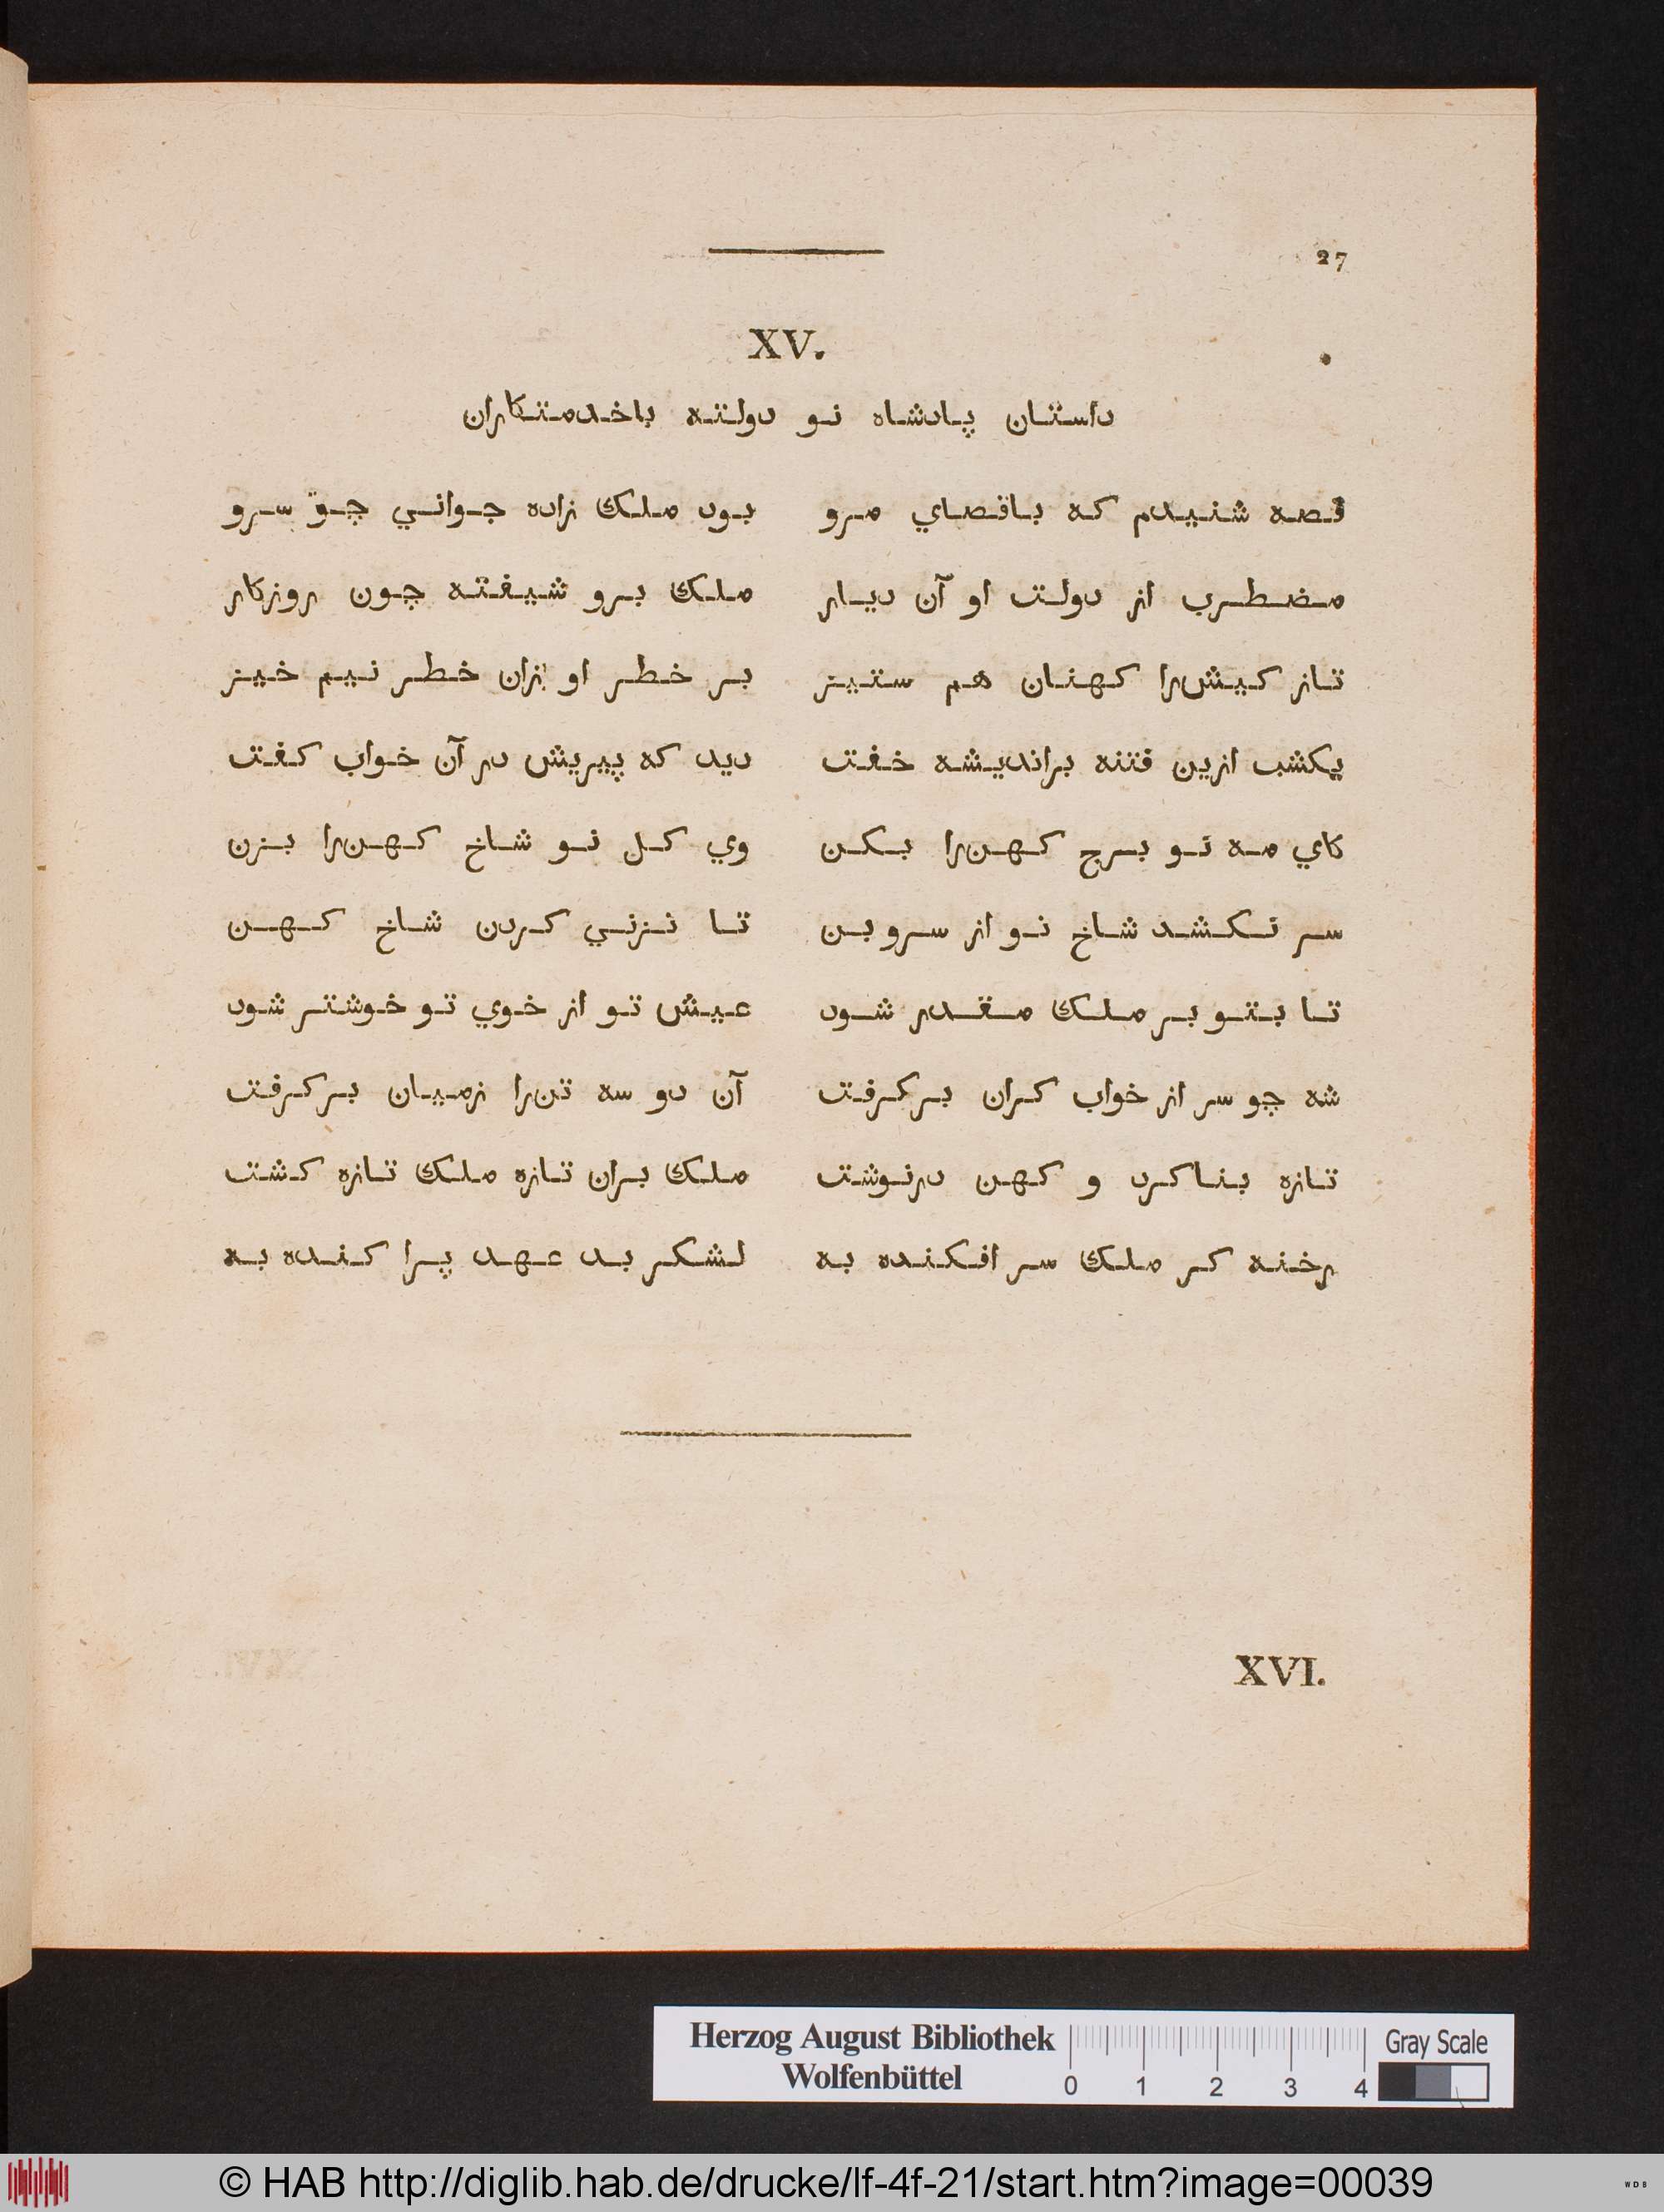 27
XV.
داستان پادشاه نو دولته باخدمتکاران
قصه شنیدم که باقصاي مرو بود ملک زاده جواني چو سرو
مضطرب از دولت او آن دیار ملک برو شیفته چون روزکار
تاز کیش‌را کهنان هم ستیز بر خطر او زان خطر نیم خیز
یکشب ازین فتنه براندیشه خفت دید که پیریش در آن خواب کفت
کاي مه نو برج کهن‌را بکن وي کل نو شاخ کهن‌را بزن
سر نکشد شاخ نو از سرو بن تا نزني کردن شاخ کهن
تا بتو بر ملک مقدر شود عیش تو از خوي تو خوشتر شود
شه چو سر از خواب کران بر کرفت آن دو سه تن‌را زمیان بر کرفت
تازه بنا کرد و کهن درنوشت ملک بران تازه ملک تازه کشت
رخنه کر ملک سر افکنده به لشکر بد عهد پرا کنده به
XVI.
Herzog August Bibliothek
Wolfenbüttel
0 1 2 3 4
Gray Scale
© HAB http://diglib.hab.de/drucke/lf-4f-21/start.htm?image=00039
WDB